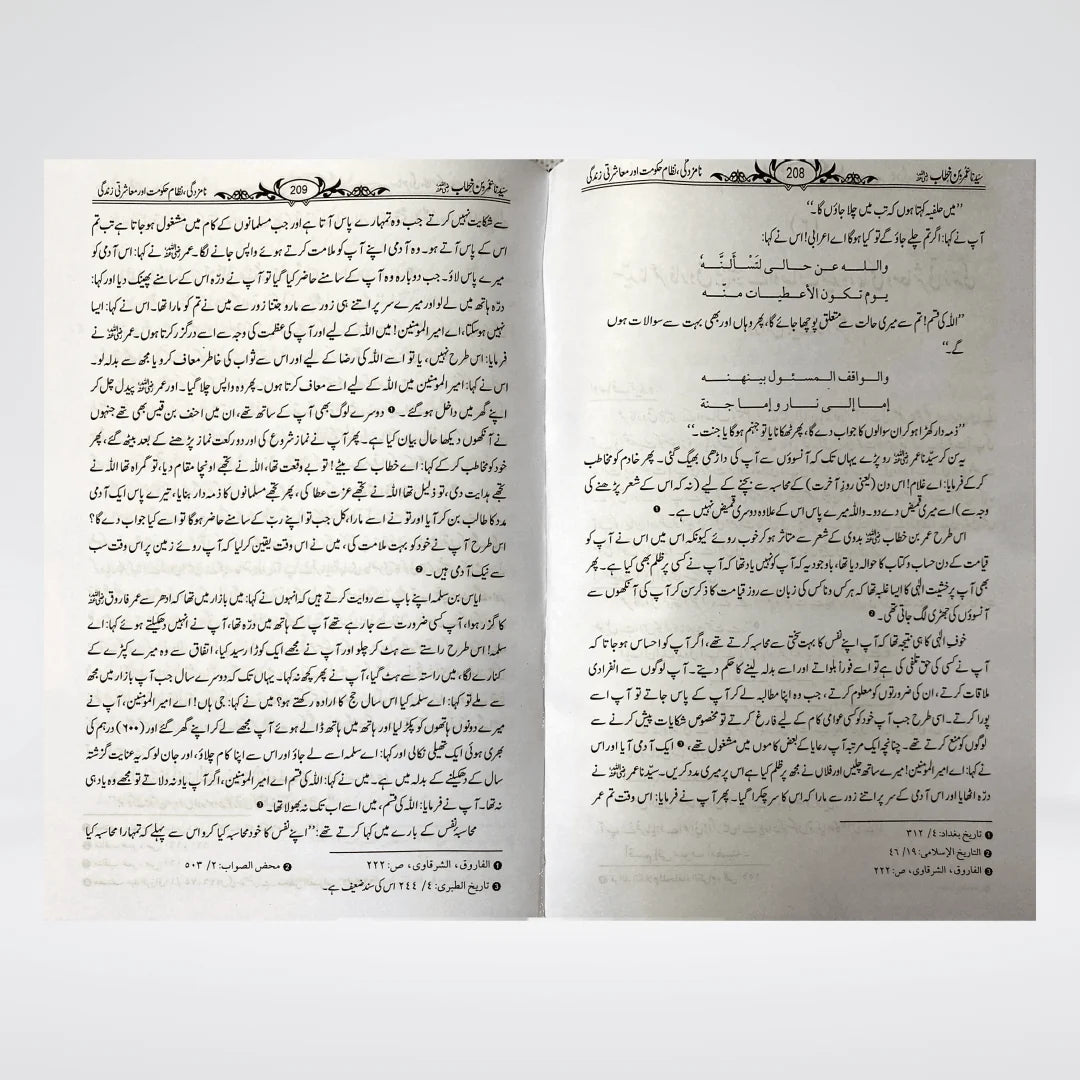 سیّدنا عمر بن خطاب رضی اللہ عنہ 208 نامزدگی، نظام حکومت اور معاشرتی زندگی
’’میں حلفیہ کہتا ہوں کہ تب میں چلا جاؤں گا۔‘‘
آپ نے کہا: اگر تم چلے جاؤ گے تو کیا ہوگا اے اعرابی! اس نے کہا:
والله عن حالی لَتَسْأَلَنَّهٗ
یوم تکون الأعطیات منّه
’’اللہ کی قسم! تم سے میری حالت سے متعلق پوچھا جائے گا، پھر وہاں اور بھی بہت سے سوالات ہوں
گے۔‘‘
والواقف المسئول بینهنه
إما إلی نار وإما جنة
’’ذمہ دار کھڑا ہو کر ان سوالوں کا جواب دے گا، پھر ٹھکانا یا تو جہنم ہوگا یا جنت۔‘‘
یہ سن کر سیّدنا عمر رضی اللہ عنہ رو پڑے یہاں تک کہ آنسوؤں سے آپ کی داڑھی بھیگ گئی۔ پھر خادم کو مخاطب
کر کے فرمایا: اے غلام! اس دن (یعنی روزِ آخرت) کے محاسبہ سے بچنے کے لیے (نہ کہ اس کے شعر پڑھنے کی
وجہ سے) اسے میری قمیض دے دو۔ واللہ میرے پاس اس کے علاوہ دوسری قمیض نہیں ہے۔ ❶
اس طرح عمر بن خطاب رضی اللہ عنہ بدوی کے شعر سے متاثر ہو کر خوب روئے کیونکہ اس میں اس نے آپ کو
قیامت کے دن حساب وکتاب کا حوالہ دیا تھا، باوجود یہ کہ آپ کو نہیں یاد تھا کہ آپ نے کسی پر ظلم بھی کیا ہے۔ پھر
بھی آپ پر خشیت الٰہی کا ایسا غلبہ تھا کہ ہر کس وناکس کی زبان سے روز قیامت کا ذکر سن کر آپ کی آنکھوں سے
آنسوؤں کی جھڑی لگ جاتی تھی۔ ❷
خوفِ الٰہی کا ہی نتیجہ تھا کہ آپ اپنے نفس کا بہت سختی سے محاسبہ کرتے تھے، اگر آپ کو احساس ہو جاتا کہ
آپ نے کسی کی حق تلفی کی ہے تو اسے فوراً بلواتے اور اسے بدلہ لینے کا حکم دیتے۔ آپ لوگوں سے انفرادی
ملاقات کرتے، ان کی ضرورتوں کو معلوم کرتے، جب وہ اپنا مطالبہ لے کر آپ کے پاس جاتے تو آپ اسے
پورا کرتے۔ اسی طرح جب آپ خود کو کسی عوامی کام کے لیے فارغ کرتے تو مخصوص شکایات پیش کرنے سے
لوگوں کو منع کرتے تھے۔ چنانچہ ایک مرتبہ آپ رعایا کے بعض کاموں میں مشغول تھے، ❸ ایک آدمی آیا اور اس
نے کہا: اے امیر المومنین! میرے ساتھ چلیں اور فلاں نے مجھ پر ظلم کیا ہے اس پر میری مدد کریں۔ سیّدنا عمر رضی اللہ عنہ نے
درّہ اٹھایا اور اس آدمی کے سر پر اتنے زور سے مارا کہ اس کا سر چکرا گیا۔ پھر آپ نے فرمایا: اس وقت تم عمر
❶ تاریخ بغداد: ٤/ ٣١٢
❷ التاریخ الإسلامی: ١٩/ ٤٦
❸ الفاروق، الشرقاوی، ص: ٢٢٢
سیّدنا عمر بن خطاب رضی اللہ عنہ 209 نامزدگی، نظام حکومت اور معاشرتی زندگی
سے شکایت نہیں کرتے جب وہ تمہارے پاس آتا ہے اور جب مسلمانوں کے کام میں مشغول ہو جاتا ہے تب تم
اس کے پاس آتے ہو۔ وہ آدمی اپنے آپ کو ملامت کرتے ہوئے واپس جانے لگا۔ عمر رضی اللہ عنہ نے کہا: اس آدمی کو
میرے پاس لاؤ۔ جب دوبارہ وہ آپ کے سامنے حاضر کیا گیا تو آپ نے درّہ اس کے سامنے پھینک دیا اور کہا:
درّہ ہاتھ میں لے لو اور میرے سر پر اتنے ہی زور سے مارو جتنا زور سے میں نے تم کو مارا تھا۔ اس نے کہا: ایسا
نہیں ہوسکتا، اے امیر المومنین! میں اللہ کے لیے اور آپ کی عظمت کی وجہ سے اسے درگزر کرتا ہوں۔ عمر رضی اللہ عنہ نے
فرمایا: اس طرح نہیں، یا تو اسے اللہ کی رضا کے لیے اور اس سے ثواب کی خاطر معاف کر دو یا مجھ سے بدلہ لو۔
اس نے کہا: امیر المومنین میں اللہ کے لیے اسے معاف کرتا ہوں۔ پھر وہ واپس چلا گیا۔ اور عمر رضی اللہ عنہ پیدل چل کر
اپنے گھر میں داخل ہو گئے۔ ❶ دوسرے لوگ بھی آپ کے ساتھ تھے، ان میں احنف بن قیس بھی تھے جنہوں
نے آنکھوں دیکھا حال بیان کیا ہے۔ پھر آپ نے نماز شروع کی اور دو رکعت نماز پڑھنے کے بعد بیٹھ گئے، پھر
خود کو مخاطب کر کے کہا: اے خطاب کے بیٹے! تو بے وقعت تھا، اللہ نے تجھے اونچا مقام دیا، تو گمراہ تھا اللہ نے
تجھے ہدایت دی، تو ذلیل تھا اللہ نے تجھے عزت عطا کی، پھر تجھے مسلمانوں کا ذمہ دار بنایا، تیرے پاس ایک آدمی
مدد کا طالب بن کر آیا اور تو نے اسے مارا، کل جب تو اپنے ربّ کے سامنے حاضر ہوگا تو اسے کیا جواب دے گا؟
اس طرح آپ نے خود کو بہت ملامت کی، میں نے اس وقت یقین کر لیا کہ آپ روئے زمین پر اس وقت سب
سے نیک آدمی ہیں۔ ❷
ایاس بن سلمہ اپنے باپ سے روایت کرتے ہیں کہ انہوں نے کہا: میں بازار میں تھا کہ ادھر سے عمر فاروق رضی اللہ عنہ
کا گزر ہوا، آپ کسی ضرورت سے جا رہے تھے آپ کے ہاتھ میں درّہ تھا، آپ نے انہیں دھکیلتے ہوئے کہا: اے
سلمہ! اس طرح راستے سے ہٹ کر چلو اور آپ نے مجھے ایک کوڑا رسید کیا، اتفاق سے وہ میرے کپڑے کے
کنارے لگا، میں راستہ سے ہٹ گیا، آپ نے پھر کچھ نہ کہا۔ یہاں تک کہ دوسرے سال جب آپ بازار میں مجھ
سے ملے تو کہا: اے سلمہ کیا اس سال حج کا ارادہ رکھتے ہو؟ میں نے کہا: جی ہاں! اے امیر المومنین، آپ نے
میرے دونوں ہاتھوں کو پکڑ لیا اور ہاتھ میں ہاتھ ڈالے ہوئے آپ مجھے لے کر اپنے گھر گئے اور (٦٠٠) درہم کی
بھری ہوئی ایک تھیلی نکالی اور کہا: اے سلمہ اسے لے جاؤ اور اس سے اپنا کام چلاؤ، اور جان لو کہ یہ عنایت گزشتہ
سال کے دھکیلنے کے بدلہ میں ہے۔ میں نے کہا: اللہ کی قسم اے امیر المومنین، اگر آپ یاد نہ دلاتے تو مجھے وہ یاد ہی
نہ تھا۔ آپ نے فرمایا: اللہ کی قسم، میں اسے اب تک نہ بھولا تھا۔ ❸
محاسبۂ نفس کے بارے میں کہا کرتے تھے: ’’اپنے نفس کا خود محاسبہ کیا کرو اس سے پہلے کہ تمہارا محاسبہ کیا
❶ الفاروق، الشرقاوی، ص: ٢٢٢ ❷ محض الصواب: ٢/ ٥٠٣
❸ تاریخ الطبری: ٤/ ٢٤٤ اس کی سند ضعیف ہے۔